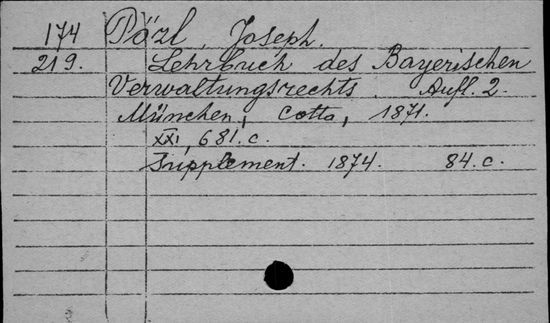 174 Pözl, Joseph.
219. Lehrbuch des Bayerischen
Verwaltungsrechts. Aufl. 2.
München, Cotta, 1871.
XXI, 681. c.
Supplement. 1874. 84. c.